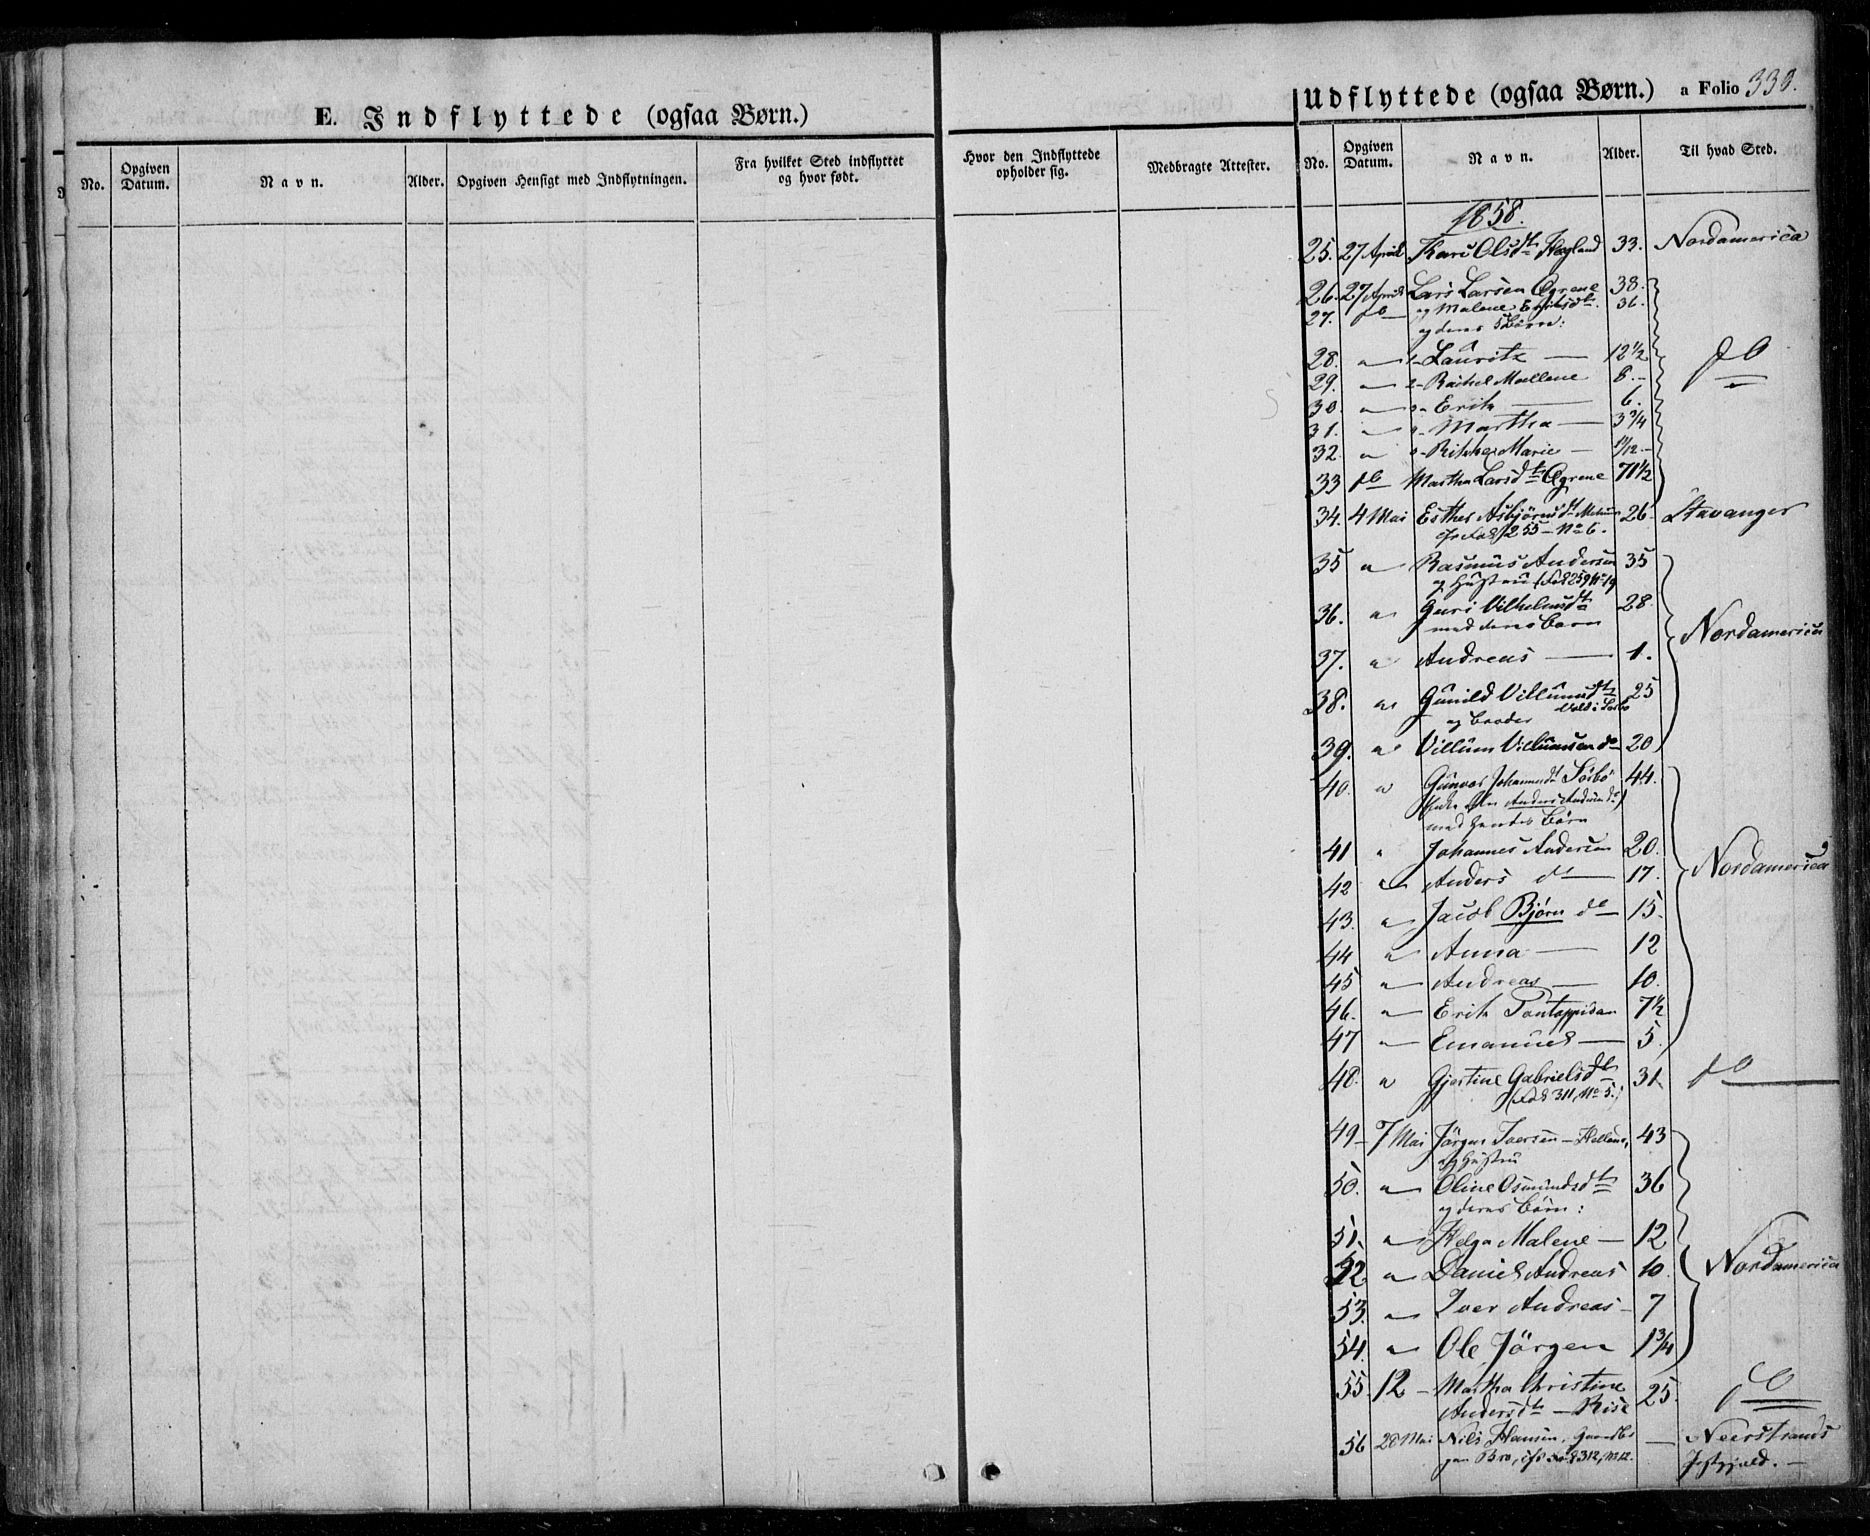 E. Indflyttede (ogsaa Børn.)
No.
Opgiven Datum.
Navn.
Alder.
Opgiven Hensigt med Indflytningen.
Fra hvilket Sted indflyttet og hvor født.
Hvor den Indflyttede opholder sig.
Medbragte Attester.
Udflyttede (ogsaa Børn.) a Folio 330.
No.
Opgiven Datum.
Navn.
Alder.
Til hvad Sted.
1858.
25. 27 April Kari Olsdt Høgland 33. Nordamerica
26. 27 April Lars Larsen Øgrene 38.
27. do og Malene Eriksdtr. 36.
og deres 5 Børn:
28. " 1- Lauritz — 12 1/2 do
29. " 2- Rachel Mallene 8.-
30. " 3- Erik — 6.
31. " 4- Martha — 3 3/4
32. " 5- Rikke Marie — 11/12 -
33 do Martha Larsdt Øgrene 71 1/2
34. 4 Mai Esther Asbjørnsdt 26 Stavanger
cfr Fol. 255 - No 6.
35 " Rasmus Andersen 35
og Hustru (Fol 259 No 19
36. " Guri Vilhelmsdt 28.
med deres Barn Nordamerica
37. " Andreas — 1.
38. " Gunild Villumsdt 25
og Broder
39. " Villum Villumsen do 20
40. " Gunvor Johannesdt Sørbø 44.
Enke efter Anders
med hendes Børn
41 " Johannes Andersen 20.
42 " Anders do — 17. Nordamerica
43. " Jacob Bjørn do — 15.
44 " Anna — 12
45 " Andreas — 10.
46. " Erik Pontoppidan 7 1/2
47 " Emanuel — 5.
48. " Gjertine Gabrielsdt 31 do
(Fol 311, No 5.)
49 - 7 Mai Jørgen Iversen — 43
og Hustru
50. " Oline Osmundsdt 36
og deres Børn:
51. " Helga Malene — 12
52 " Daniel Andreas 10. Nordamerica
53. " Iver Andreas - 7
54. " Ole Jørgen 1 3/4
55. 12 - Martha Christine 25. do
Andersdt — Rise
56 28 Mai Nils Hansen, — Neerstrands
Bro, cfr Fol 312, No 12. Præstgjeld. —